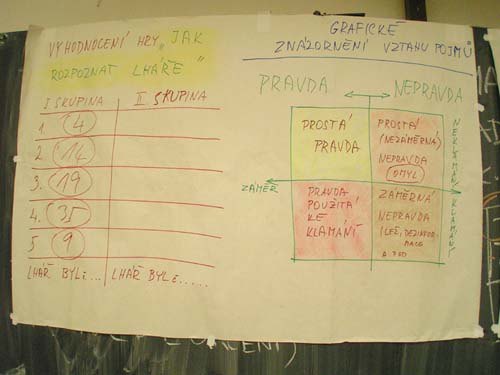 VYHODNOCENÍ HRY „JAK
ROZPOZNAT LHÁŘE"
I SKUPINA II SKUPINA
1. 4
2. 14
3. 19
4. 35
5 9
LHÁŘ BYL... LHÁŘ BYL.....
GRAFICKÉ
ZNÁZORNĚNÍ VZTAHU POJMŮ
PRAVDA NEPRAVDA
PROSTÁ
PRAVDA
PROSTÁ
(NEZÁMĚRNÁ)
NEPRAVDA
OMYL
NEKLAMÁNÍ
ZÁMĚR
PRAVDA
POUŽITÁ
KE
KLAMÁNÍ
ZÁMĚRNÁ
NEPRAVDA
(LEŽ, DEZINFOR-
MACE
KLAMÁNÍ